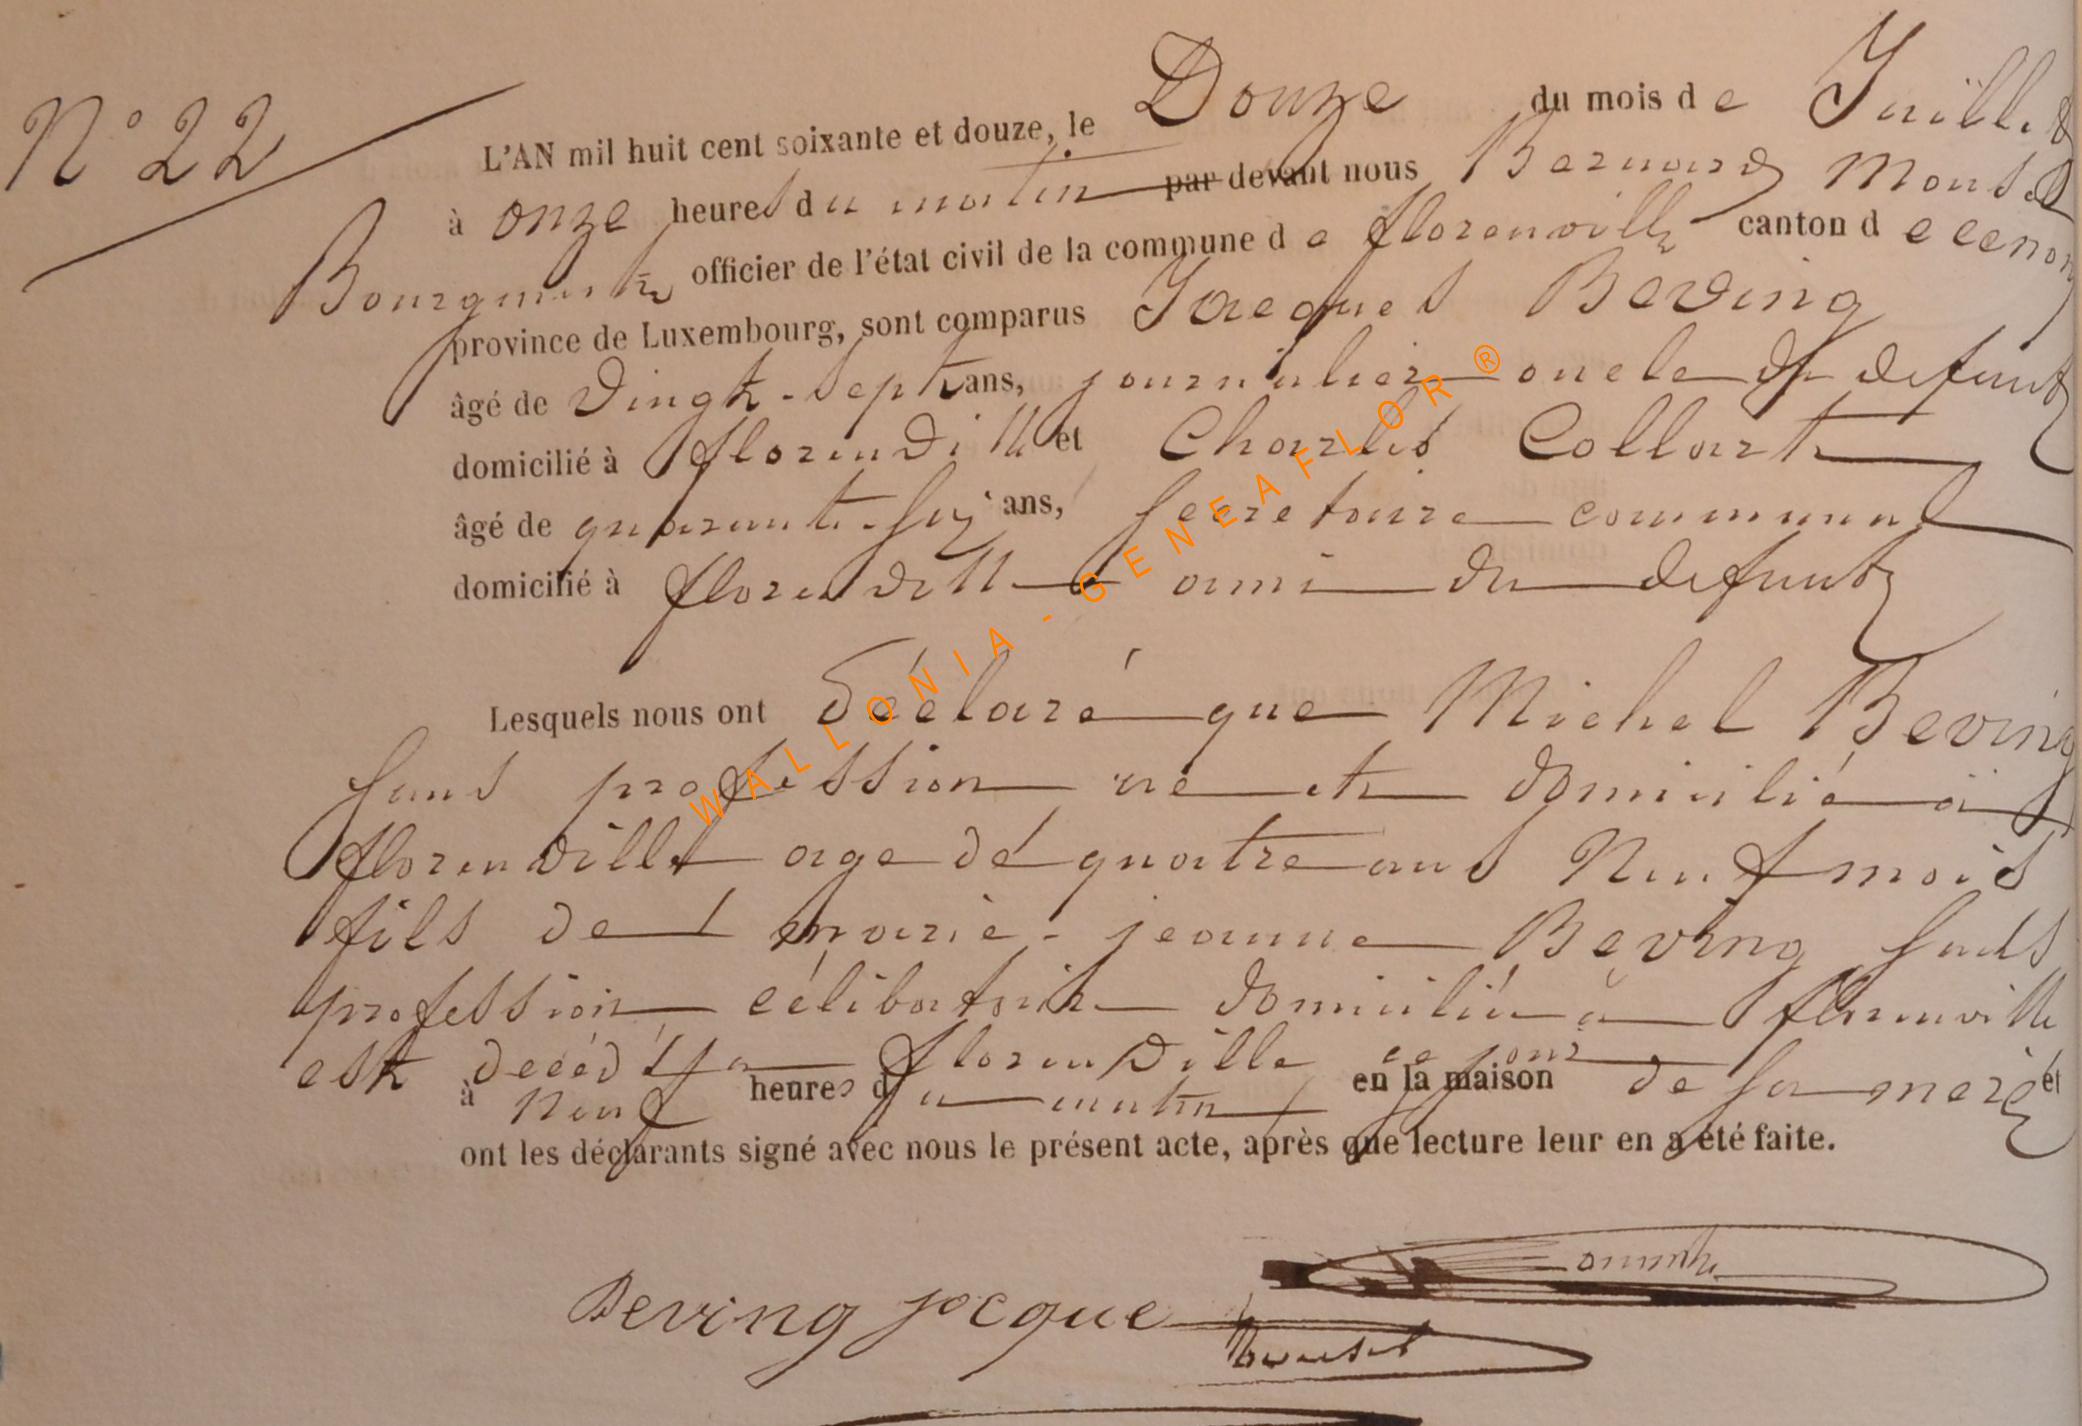 N° 22
L'AN mil huit cent soixante et douze, le Douze du mois de Juillet
à onze heures du matin par devant nous Bernard Mousel
Bourgmestre officier de l'état civil de la commune de florenville canton de
province de Luxembourg, sont comparus Jacques Beving
âgé de Vingt-sept ans, journalier oncle du defunt
domicilié à florenville et Charles Collart
âgé de quarante-six ans, secretaire communal
domicilié à florenville ami du defunt
Lesquels nous ont déclaré que Michel Beving
sans profession né et domicilié à
florenville age de quatre ans Neuf mois
fils de marie-jeanne Beving sans
profession célibataire domiciliée à florenville
est décédé à florenville ce jour
à Neuf heures du matin en la maison de sa mere et
ont les déclarants signé avec nous le présent acte, après que lecture leur en a été faite.
Beving jacque
Mousel
WALLONIA-GENEAFLOR®